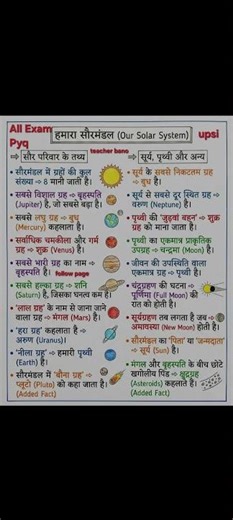 All Exam
Pyq
हमारा सौरमंडल (Our Solar System)
upsi
teacher bano
⇒ सौर परिवार के तथ्य
⇒ सूर्य, पृथ्वी और अन्य
• सौरमंडल में ग्रहों की कुल
संख्या ⇒ 8 मानी जाती है।
• सबसे विशाल ग्रह ⇒ बृहस्पति
(Jupiter) है, जो सबसे बड़ा है।
• सबसे लघु ग्रह ⇒ बुध
(Mercury) कहलाता है।
• सर्वाधिक चमकीला और गर्म
ग्रह ⇒ शुक्र (Venus) है।
• सबसे भारी ग्रह का नाम ⇒
बृहस्पति है।
follow page
• सबसे हल्का ग्रह ⇒ शनि
(Saturn) है, जिसका घनत्व कम है।
• 'लाल ग्रह' के नाम से जाना जाने
वाला ग्रह ⇒ मंगल (Mars) है।
• 'हरा ग्रह' कहलाता है ⇒
अरुण (Uranus)।
• 'नीला ग्रह' ⇒ हमारी पृथ्वी
(Earth) है।
• सौरमंडल में 'बौना ग्रह' ⇒
प्लूटो (Pluto) को कहा जाता है।
(Added Fact)
• सूर्य के सबसे निकटतम ग्रह
⇒ बुध है।
• सूर्य से सबसे दूर स्थित ग्रह ⇒
वरुण (Neptune) है।
• पृथ्वी की 'जुड़वां बहन' ⇒ शुक्र
ग्रह को माना जाता है।
• पृथ्वी का एकमात्र प्राकृतिक
उपग्रह ⇒ चन्द्रमा (Moon) है।
• जीवन की उपस्थिति वाला
एकमात्र ग्रह ⇒ पृथ्वी है।
• चंद्रग्रहण की घटना ⇒
पूर्णिमा (Full Moon) की
रात को होती है।
• सूर्यग्रहण तब लगता है जब ⇒
अमावस्या (New Moon) होती है।
• सौरमंडल का 'पिता' या 'जन्मदाता'
⇒ सूर्य (Sun) है।
• मंगल और बृहस्पति के बीच छोटे
खगोलीय पिंड ⇒ क्षुद्रग्रह
(Asteroids) कहलाते हैं।
(Added Fact)